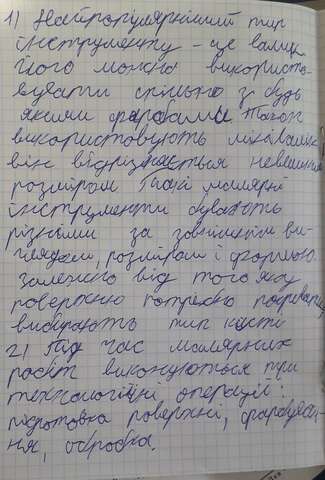 1) Найпопулярніший тип
інструменту - це валик
його можна використо-
вувати спільно з будь
якими фарбами. Також
використовують мінівалик
він відрізняється невеликим
розміром Такі малярні
інструменти бувають
різними за зовнішнім ви-
глядом, розміром і формою.
залежно від того яку
поверхню потрібно пофарбувати
вибирають тип кисті
2) Під час малярних
робіт виконуються три
технологічні операції:
підготовка поверхні, фарбуван-
ня, обробка.